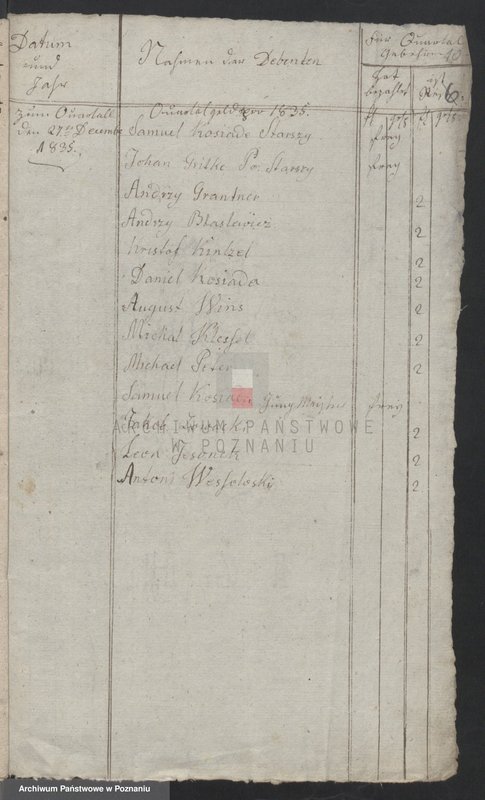 Datum
und
Jahr
Nahmen der Debenten
Für Quartal
Gebühren
10
Hat
bezahlt
ist
Rest
6
fl gr fl gr
Zum Quartal
den 27ten Decembr
1835.
Quartalgeld pro 1835.
Samuel Kosiade Starszy frey
Johan Grithe Po: Starszy frey
Andrzy Grantner 2
Andrzy Blaslawicz 2
Kristof Kintzel 2
Daniel Kosiada 2
August Wins 2
Michal Klessel 2
Michael Peter 2
Samuel Kosiade Jung Meister frey
Jakob 2
Leon 2
Antoni Wessoloski 2
ARCHIWUM PAŃSTWOWE
W POZNANIU
Archiwum Państwowe w Poznaniu